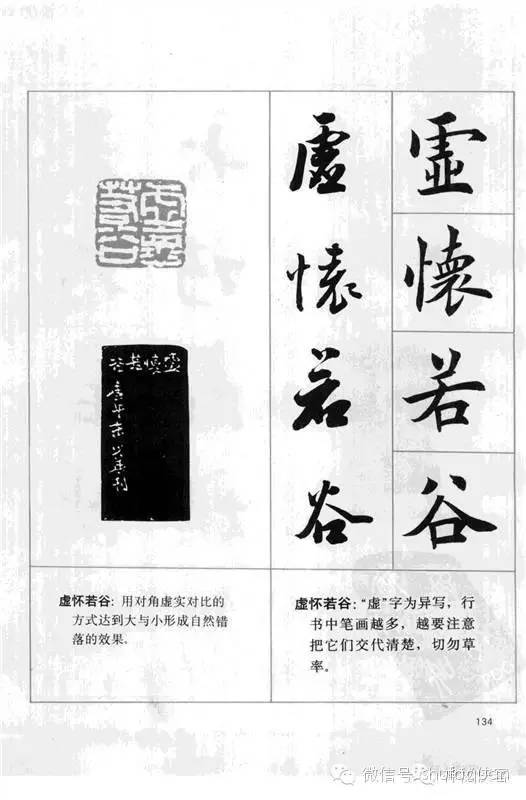 虚
懷
若
谷
虚
懷
若
谷
虚懷若谷
虚懷若谷
虚怀若谷：用对角虚实对比的
方式达到大与小形成自然错
落的效果。
虚怀若谷：“虚”字为异写，行
书中笔画越多，越要注意
把它们交代清楚，切勿草
率。
134
微信号